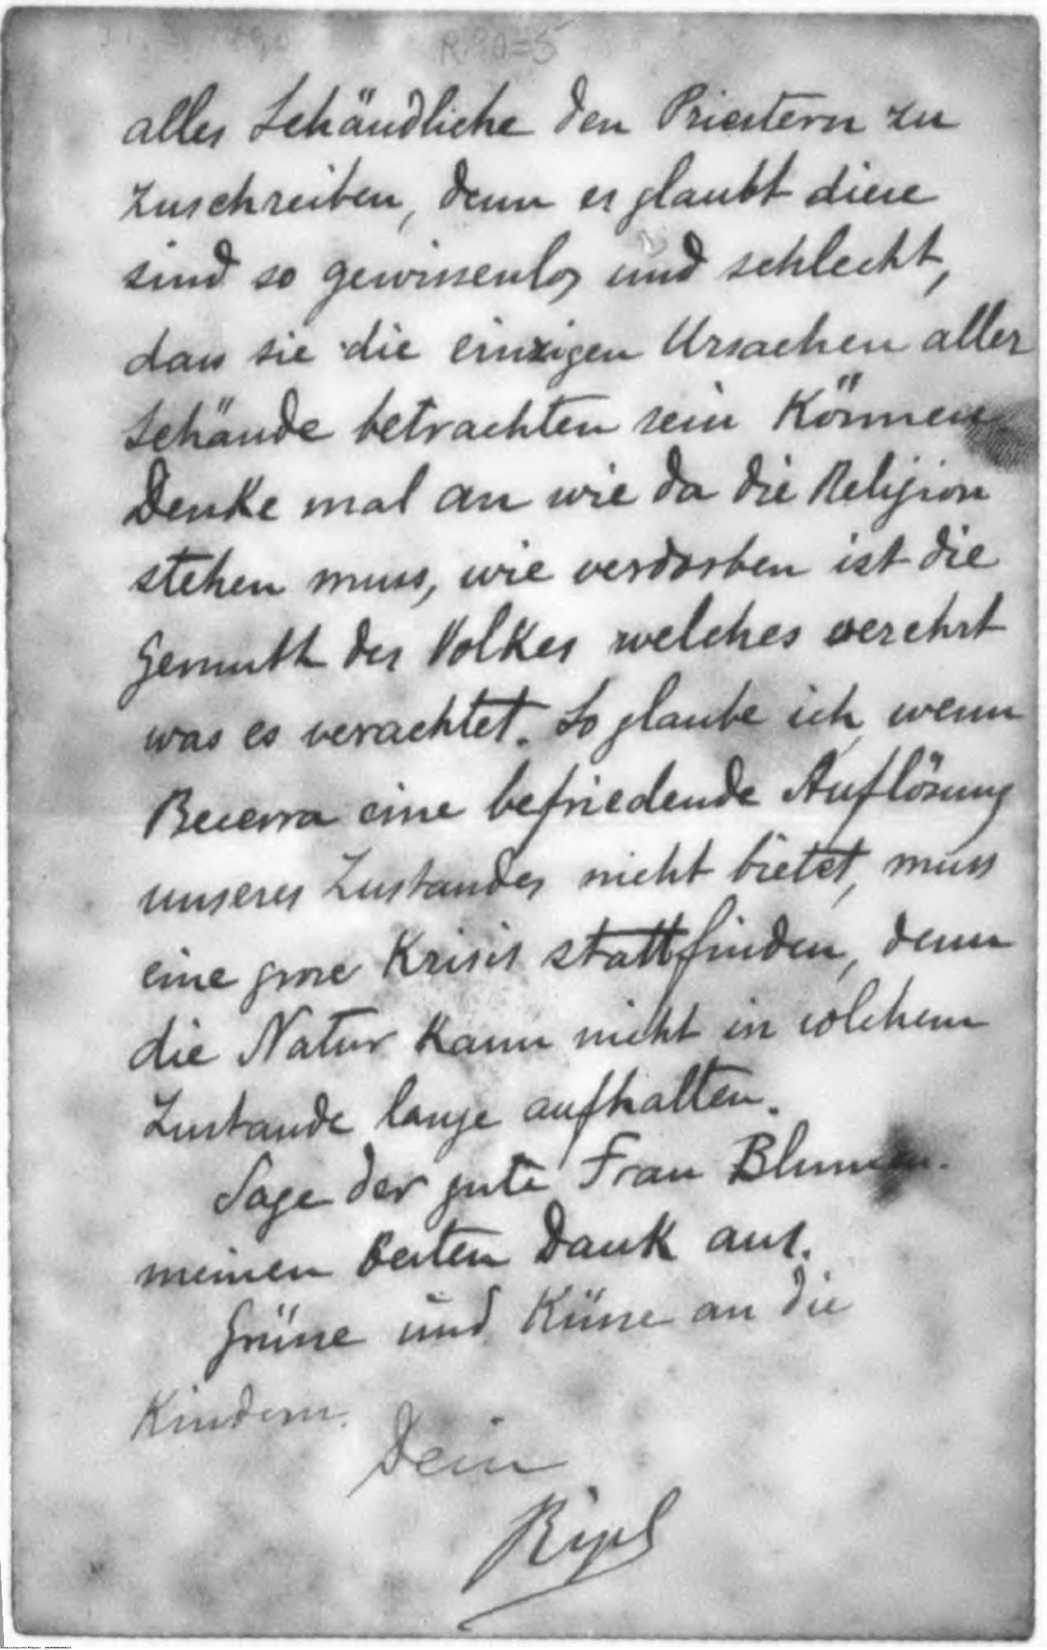 alles Schändliche den Priestern zu
zuschreiben, denn es glaubt diese
sind so gewissenlos und schlecht,
dass sie die einzigen Ursachen aller
Schände betrachten sein Können
Denke mal an wie da die Religion
stehen muss, wie verdorben ist die
Gemuth des Volkes welches verehrt
was es verachtet. So glaube ich wenn
Becerra eine befriedende Auflösung
unseres Zustandes nicht bietet, muss
eine grose Krisis stattfinden, denn
die Natur kann nicht in solchem
Zustande lange aufhalten.
Sage der gute Frau Blumen.
meinen besten Dank aus.
Grüsse und Küsse an die
Kindern.
Dein
Rizal